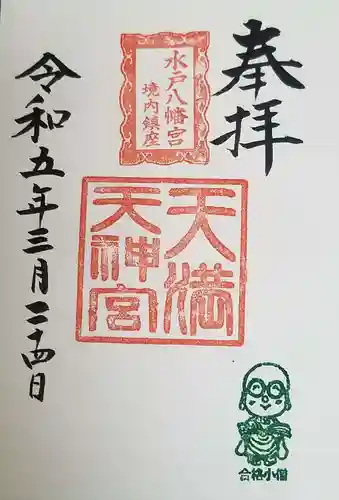 奉拝
水戸八幡宮
境内鎮座
天満
天神宮
令和五年三月二十四日
合格小僧